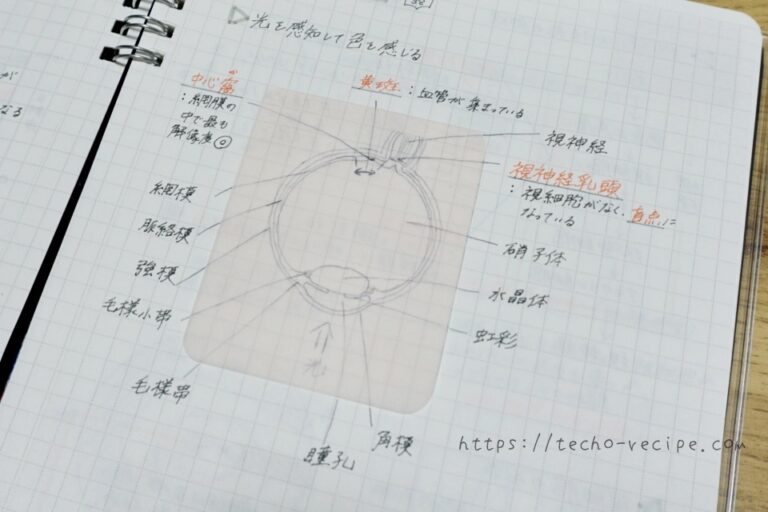 ▷光を感知して色を感じる
中心窩
:網膜の
中で最も
解像度◎
黄斑:血管が集まっている
視神経
視神経乳頭
:視細胞がなく、盲点に
なっている
網模
脈絡模
強模
毛様小帯
毛様帯
硝子体
水晶体
虹彩
光
瞳孔
角模
が
なる
https://techo-recipe.com